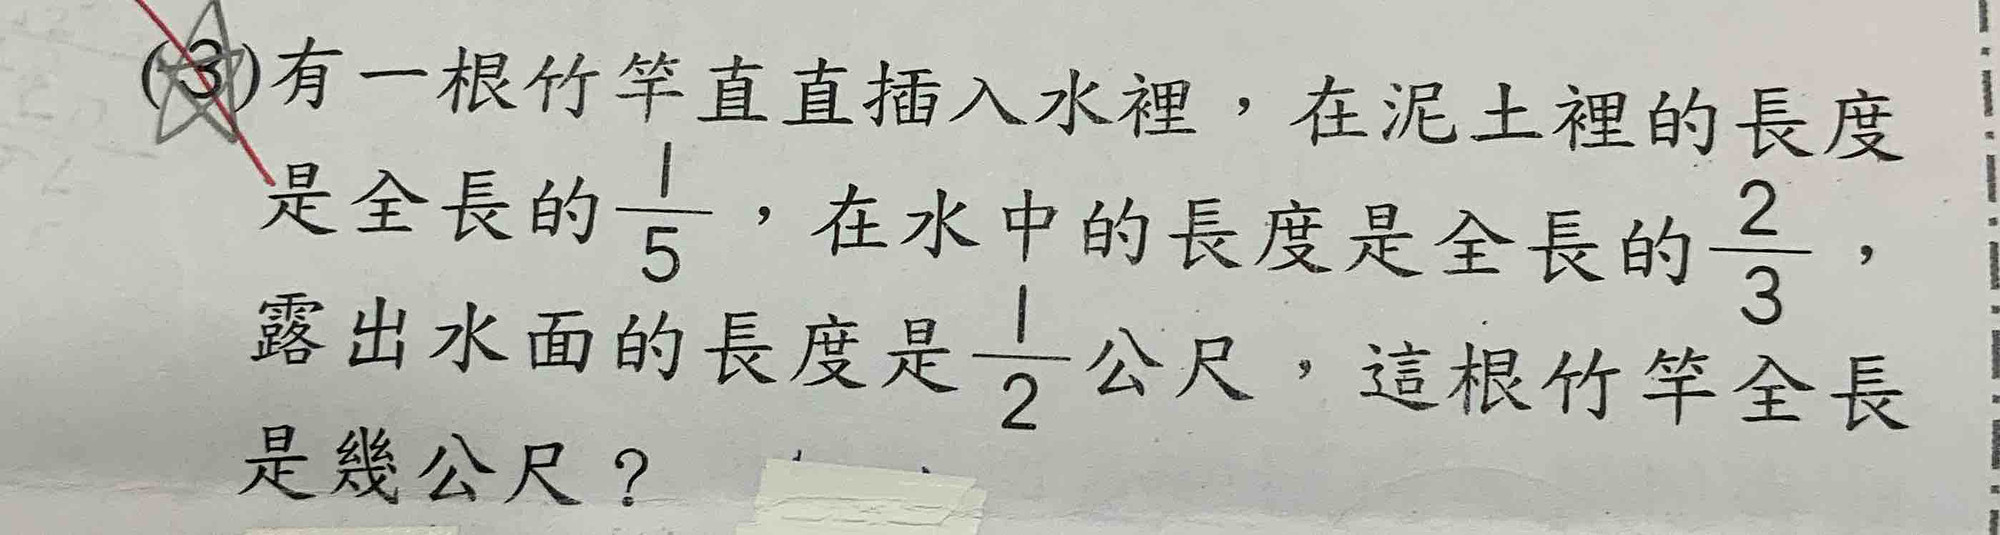 (3)有一根竹竿直直插入水裡，在泥土裡的長度
是全長的1/5，在水中的長度是全長的2/3，
露出水面的長度是1/2公尺，這根竹竿全長
是幾公尺？